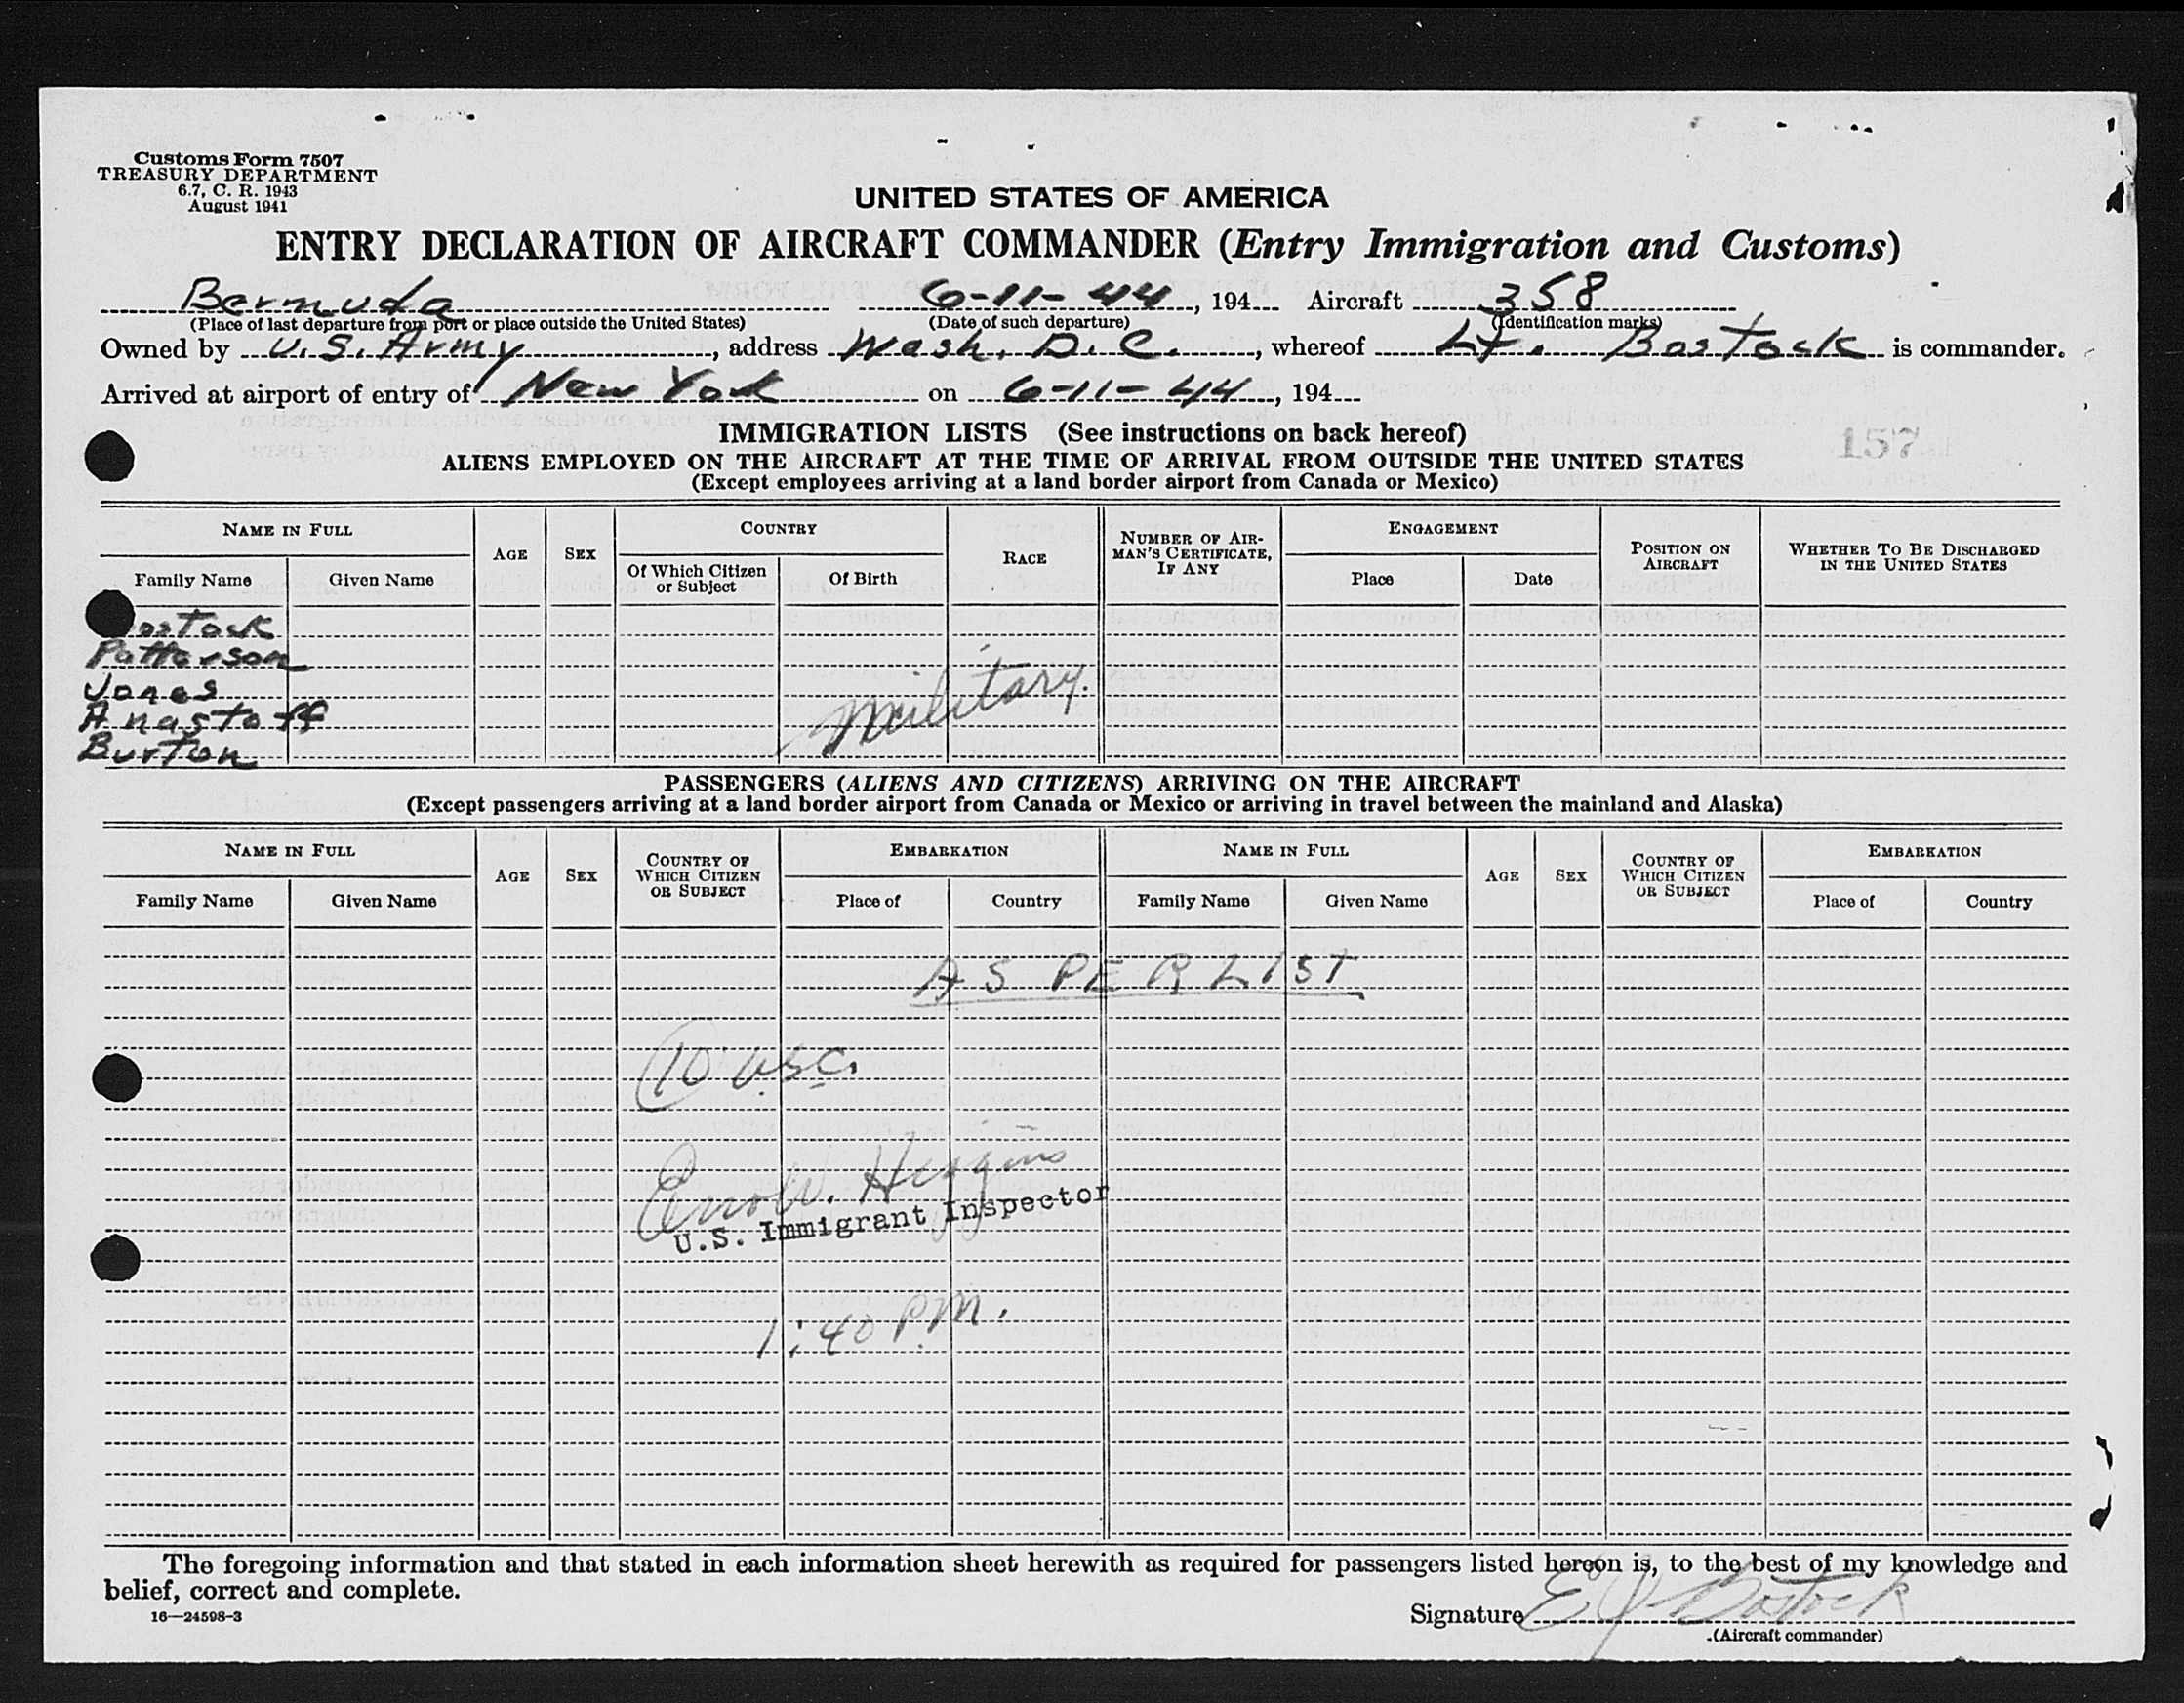 Customs Form 7507
TREASURY DEPARTMENT
6.7, C. R. 1943
August 1941
UNITED STATES OF AMERICA
ENTRY DECLARATION OF AIRCRAFT COMMANDER (Entry Immigration and Customs)
Bermuda 6-11-44, 194 Aircraft 358
(Place of last departure from port or place outside the United States) (Date of such departure) (Identification marks)
Owned by U.S. Army, address Wash. D.C., whereof Lt. Bostock is commander.
Arrived at airport of entry of New York on 6-11-44, 194
IMMIGRATION LISTS (See instructions on back hereof)
157
ALIENS EMPLOYED ON THE AIRCRAFT AT THE TIME OF ARRIVAL FROM OUTSIDE THE UNITED STATES
(Except employees arriving at a land border airport from Canada or Mexico)
NAME IN FULL AGE SEX COUNTRY RACE NUMBER OF AIRMAN'S CERTIFICATE, IF ANY ENGAGEMENT POSITION ON AIRCRAFT WHETHER TO BE DISCHARGED IN THE UNITED STATES
Family Name Given Name Of Which Citizen or Subject Of Birth Place Date
Bostock
Patterson
Jones
Anastoff
Burton
Military.
PASSENGERS (ALIENS AND CITIZENS) ARRIVING ON THE AIRCRAFT
(Except passengers arriving at a land border airport from Canada or Mexico or arriving in travel between the mainland and Alaska)
NAME IN FULL AGE SEX COUNTRY OF WHICH CITIZEN OR SUBJECT EMBARKATION NAME IN FULL AGE SEX COUNTRY OF WHICH CITIZEN OR SUBJECT EMBARKATION
Family Name Given Name Place of Country Family Name Given Name Place of Country
AS PER LIST
10 USC.
U.S. Immigrant Inspector
1:40 PM.
The foregoing information and that stated in each information sheet herewith as required for passengers listed hereon is, to the best of my knowledge and
belief, correct and complete.
16—24598-3
Signature E J Bostock
(Aircraft commander)